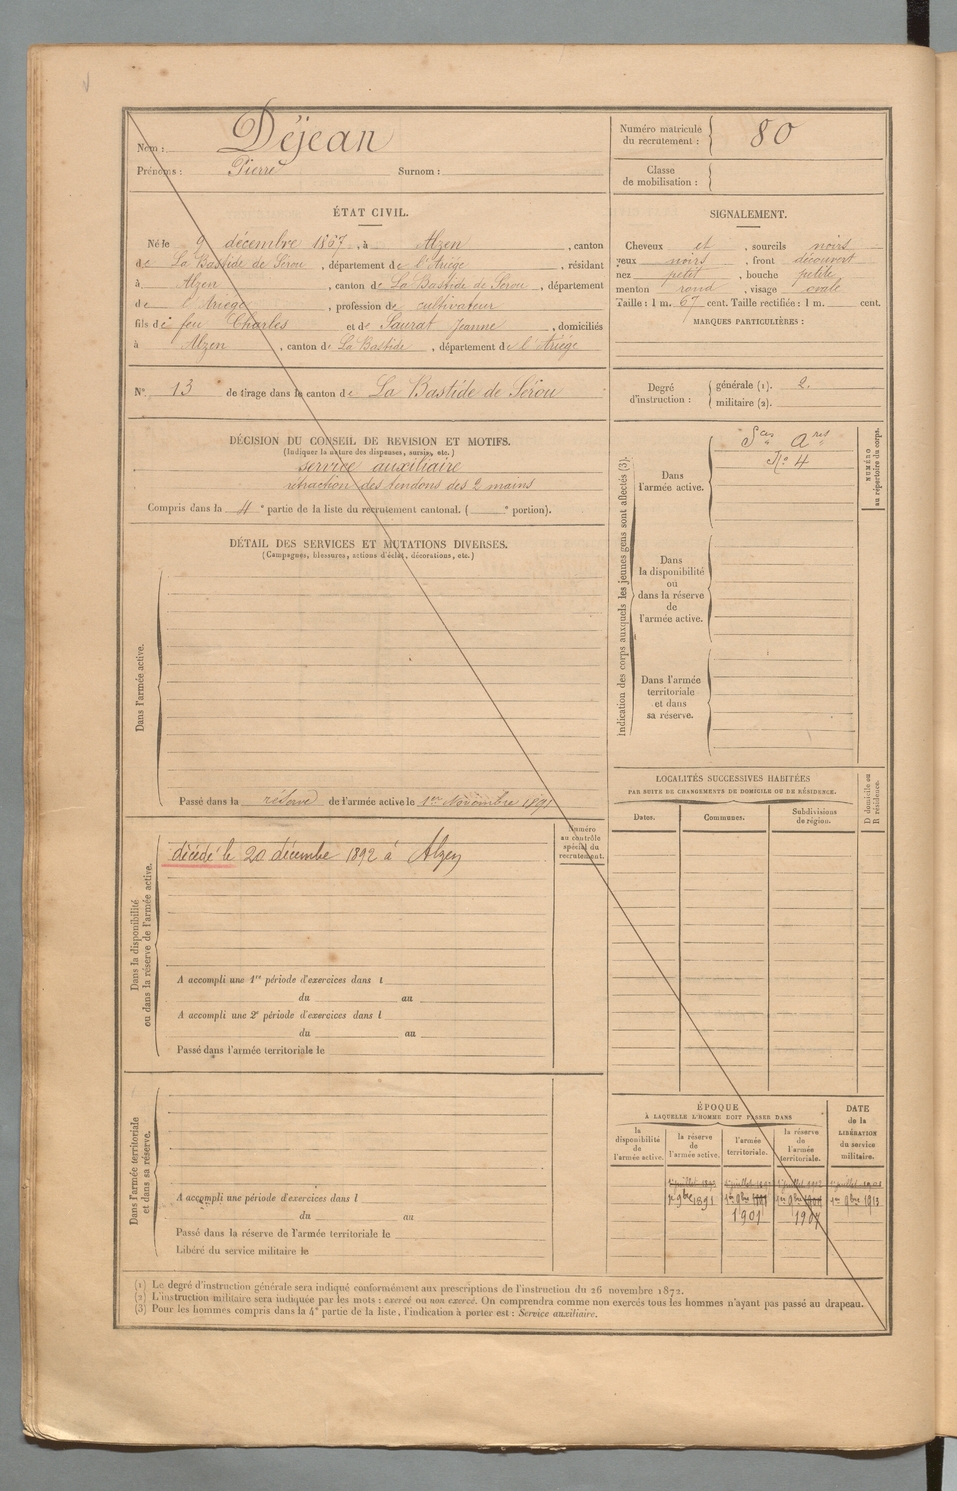 Nom : Déjean
Prénoms : Pierre Surnom :
Numéro matricule du recrutement : 80
Classe de mobilisation :
ÉTAT CIVIL.
Né le 9 décembre 1867, à Alzen, canton
de La Bastide de Sérou, département de l'Ariège, résidant
à Alzen, canton de La Bastide de Sérou, département
de l'Ariège, profession de cultivateur
fils de feu Charles et de Saurat Jeanne, domiciliés
à Alzen, canton de La Bastide, département de l'Ariège
SIGNALEMENT.
Cheveux et, sourcils noirs
yeux noirs, front découvert
nez petit, bouche petite
menton rond, visage ovale
Taille : 1 m. 67 cent. Taille rectifiée : 1 m. cent.
MARQUES PARTICULIÈRES :
N° 13 de tirage dans le canton de La Bastide de Sérou
Degré d'instruction : générale (1). 2.
militaire (2).
DÉCISION DU CONSEIL DE REVISION ET MOTIFS.
(Indiquer la nature des dispenses, sursis, etc.)
service auxiliaire
rétraction des tendons des 2 mains
Compris dans la 4e partie de la liste du recrutement cantonal. ( e portion).
DÉTAIL DES SERVICES ET MUTATIONS DIVERSES.
(Campagnes, blessures, actions d'éclat, décorations, etc.)
Dans l'armée active.
Passé dans la réserve de l'armée active le 1er Novembre 1891
Indication des corps auxquels les jeunes gens sont affectés (3).
Dans l'armée active.
Sces Ares
No 4
NUMÉRO au répertoire du corps.
Dans la disponibilité ou dans la réserve de l'armée active.
Dans l'armée territoriale et dans sa réserve.
LOCALITÉS SUCCESSIVES HABITÉES
PAR SUITE DE CHANGEMENTS DE DOMICILE OU DE RÉSIDENCE.
Dates. Communes. Subdivisions de région.
D domicile ou R résidence.
Dans la disponibilité ou dans la réserve de l'armée active.
Numéro au contrôle spécial du recrutement.
décédé le 20 décembre 1892 à Alzen
A accompli une 1re période d'exercices dans l
du au
A accompli une 2e période d'exercices dans l
du au
Passé dans l'armée territoriale le
Dans l'armée territoriale et dans sa réserve.
A accompli une période d'exercices dans l
du au
Passé dans la réserve de l'armée territoriale le
Libéré du service militaire le
ÉPOQUE
À LAQUELLE L'HOMME DOIT PASSER DANS
la disponibilité de l'armée active.
la réserve de l'armée active.
l'armée territoriale.
la réserve de l'armée territoriale.
DATE de la LIBÉRATION du service militaire.
1er 9bre 1891 1er 9bre 1er 9bre 1er 9bre 1913
1901 1907
(1) Le degré d'instruction générale sera indiqué conformément aux prescriptions de l'instruction du 26 novembre 1872.
(2) L'instruction militaire sera indiquée par les mots : exercé ou non exercé. On comprendra comme non exercés tous les hommes n'ayant pas passé au drapeau.
(3) Pour les hommes compris dans la 4e partie de la liste, l'indication à porter est : Service auxiliaire.